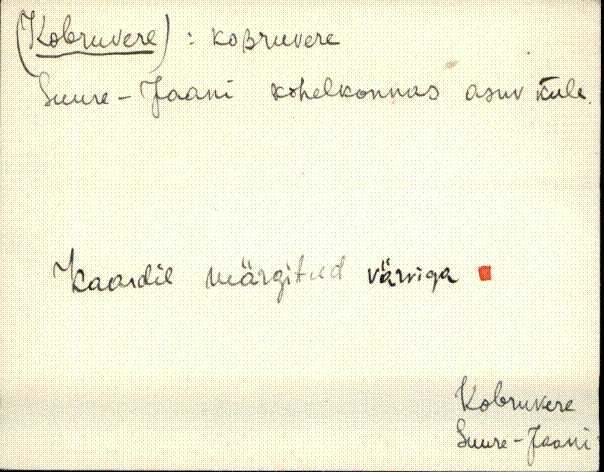 (Kobruvere) : koʙruvere
Suure-Jaani kihelkonnas asuv küla.
Kaardil märgitud värviga
Kobruvere
Suure-Jaani